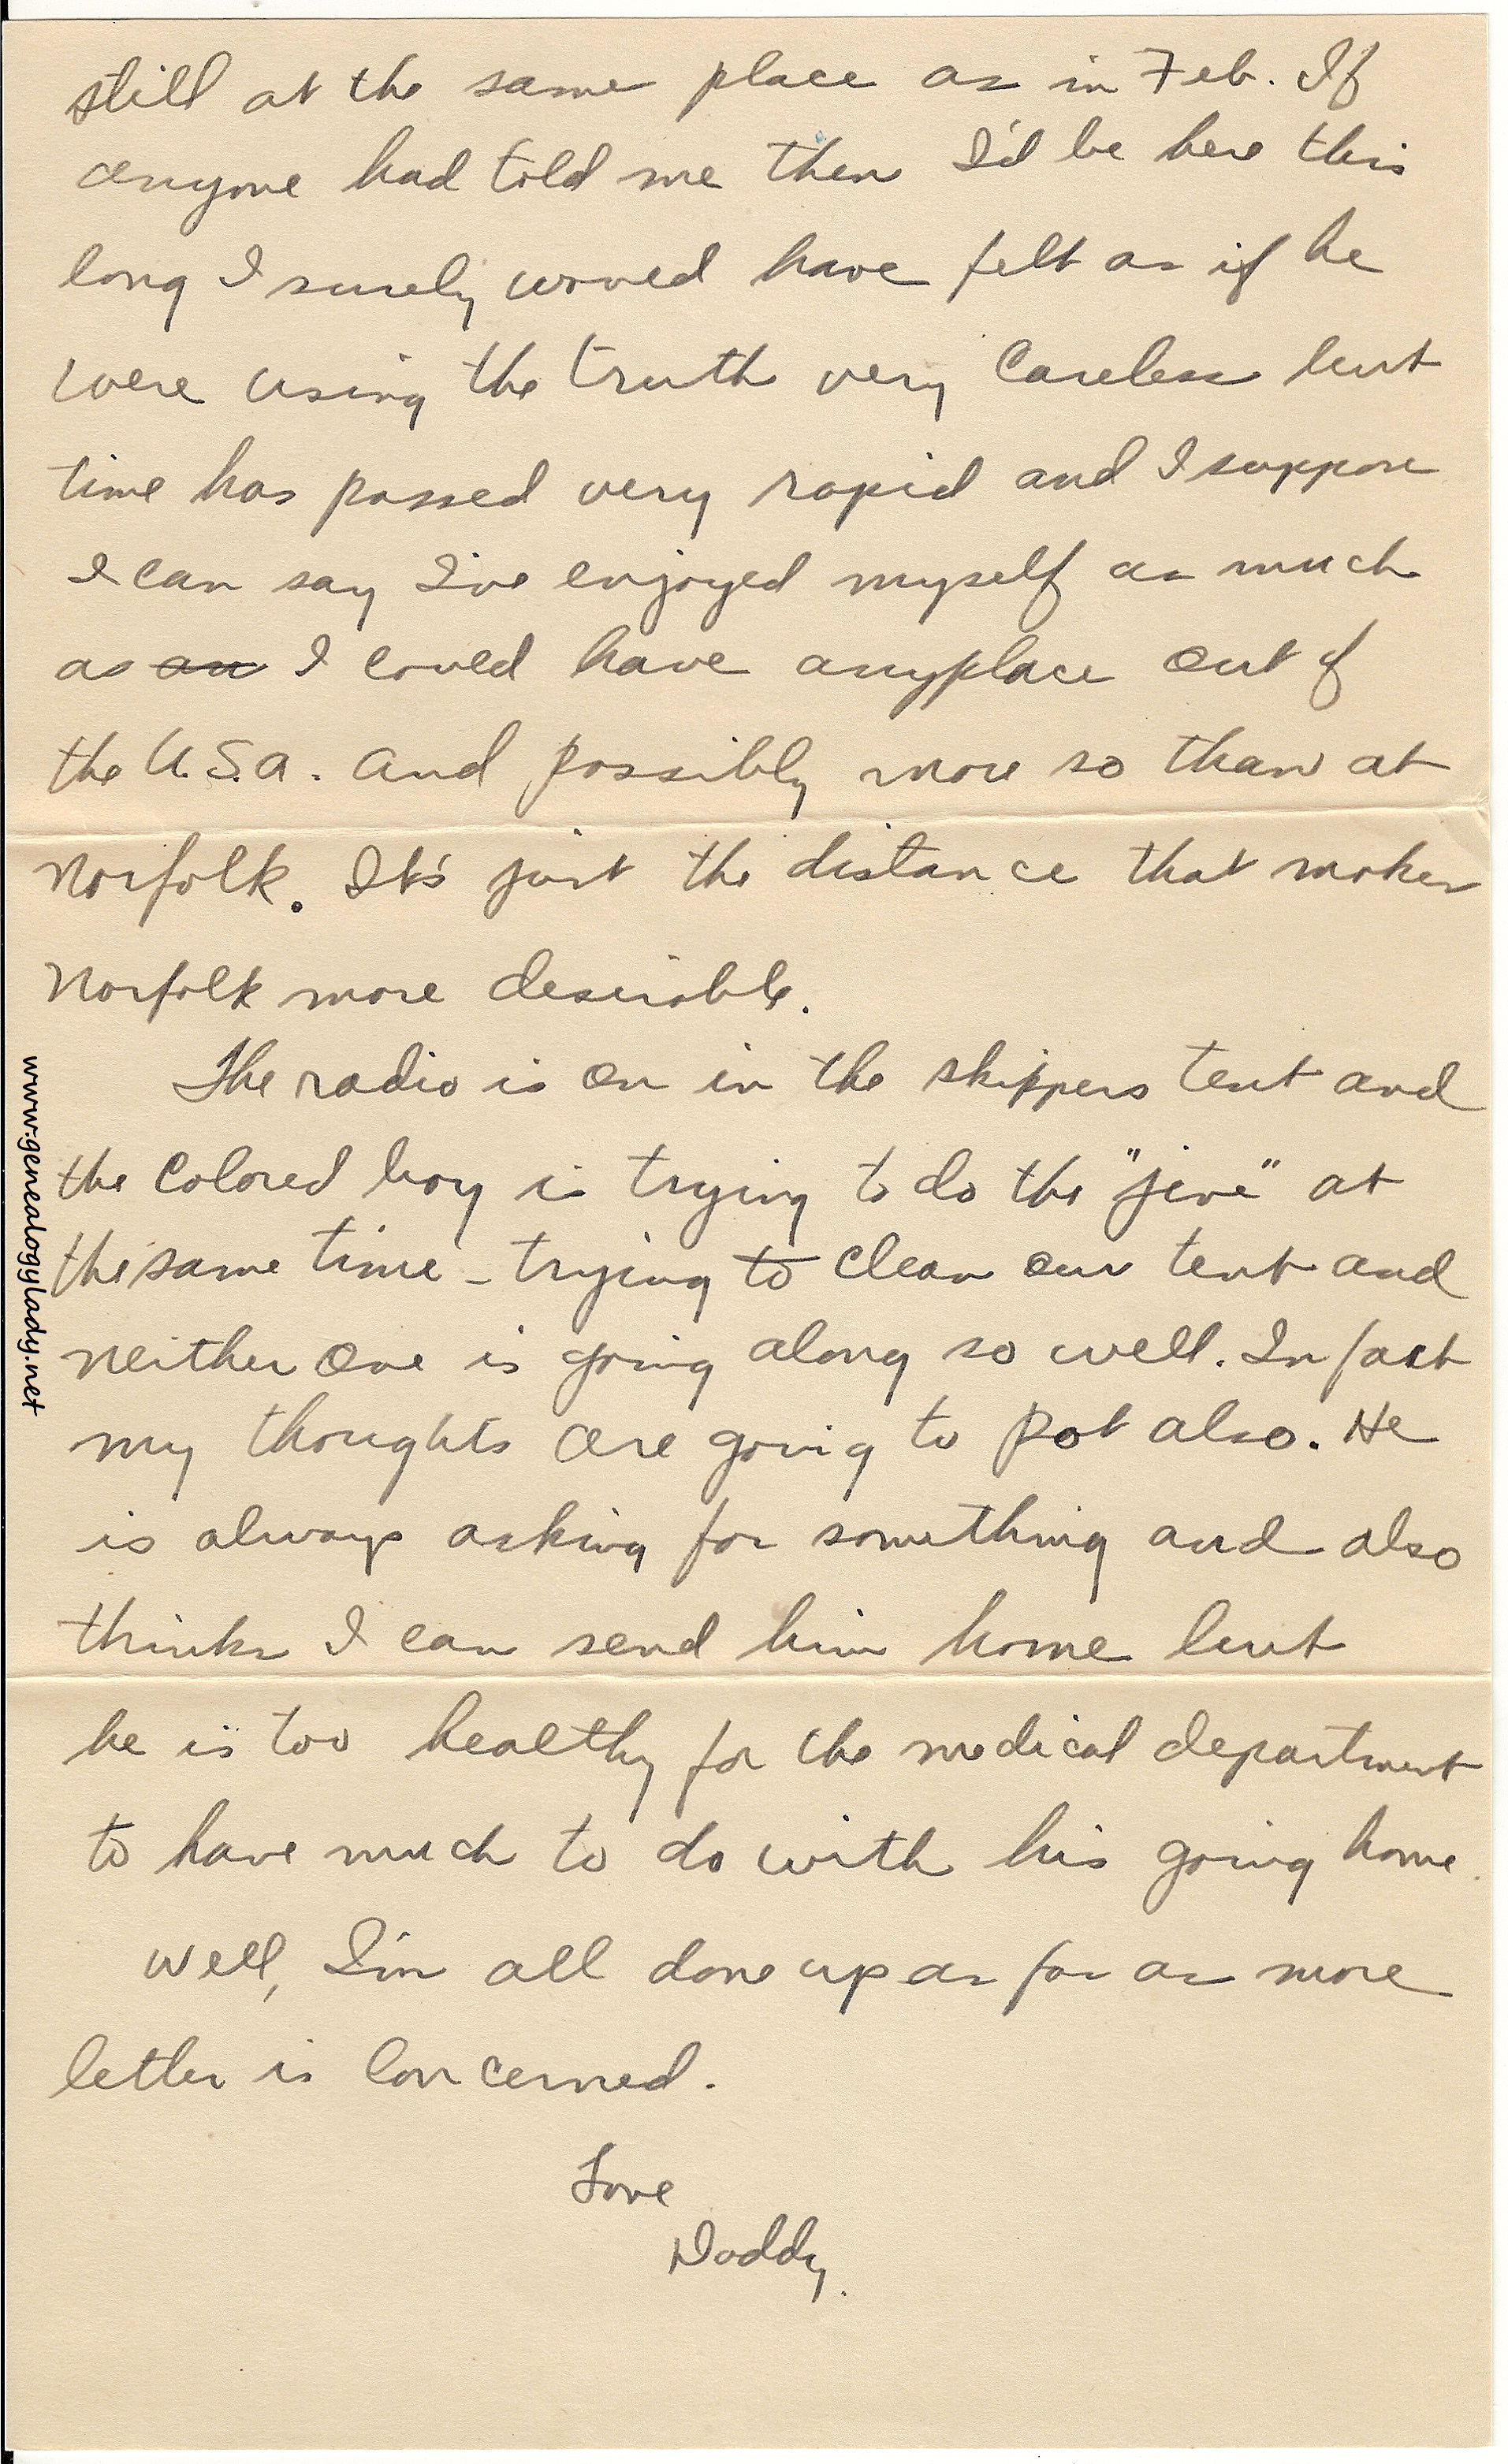 still at the same place as in Feb. If
anyone had told me then I'd be here this
long I surely would have felt as if he
were using the truth very careless but
time has passed very rapid and I suppose
I can say I've enjoyed myself as much
as an I could have anyplace out of
the U.S.A. and possibly more so than at
Norfolk. It's just the distance that makes
Norfolk more desirable.
The radio is on in the skippers tent and
the colored boy is trying to do the "jive" at
the same time - trying to clean our tent and
neither one is going along so well. In fact
my thoughts are going to pot also. He
is always asking for something and also
thinks I can send him home but
he is too healthy for the medical department
to have much to do with his going home.
Well, I'm all done up as far as more
letter is concerned.
Love
Daddy.
www.genealogylady.net